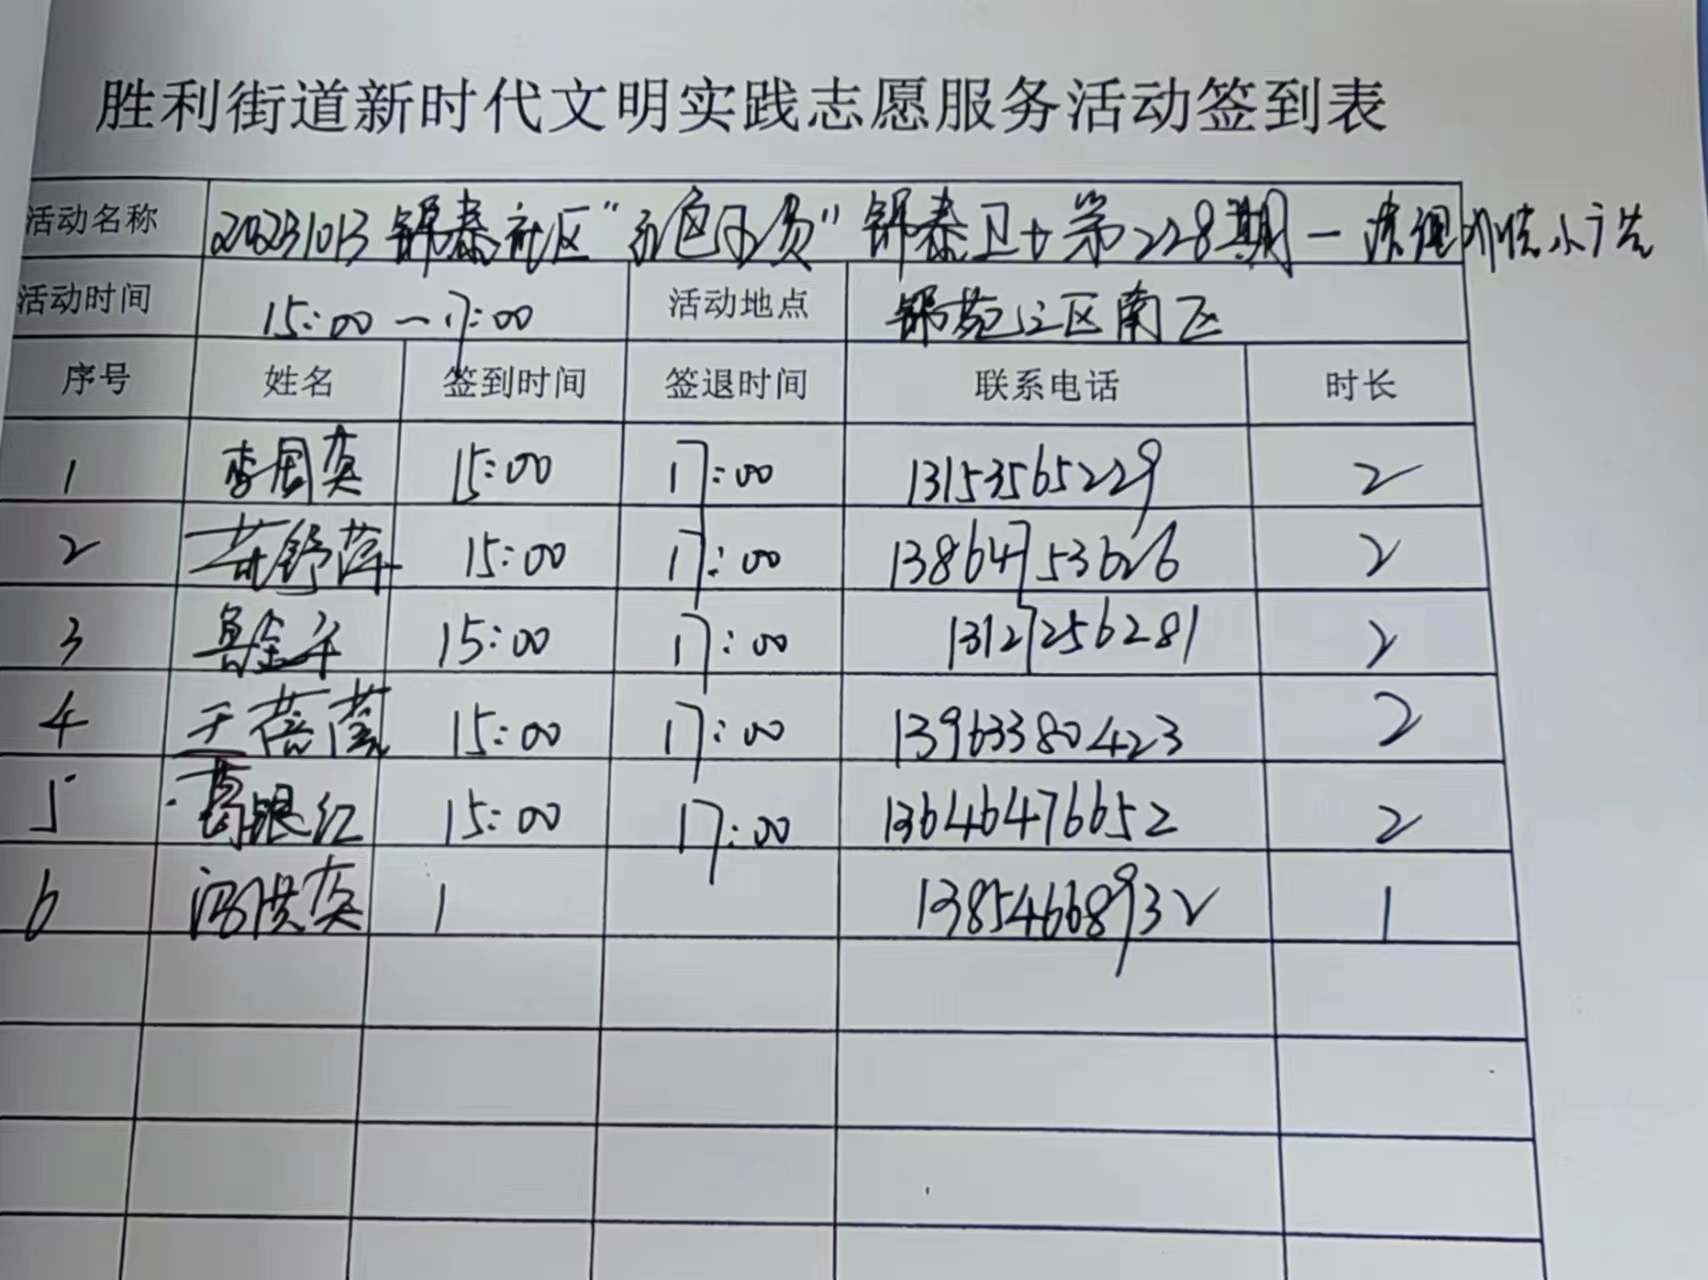 胜利街道新时代文明实践志愿服务活动签到表
活动名称 20231013 锦泰社区“红色网员”锦泰卫士第228期一清理小广告
活动时间 15:00一17:00 活动地点 锦苑小区南区
序号 姓名 签到时间 签退时间 联系电话 时长
1 李国英 15:00 17:00 13153565229 2
2 苗舒萍 15:00 17:00 13864753626 2
3 鲁金平 15:00 17:00 13127256281 2
4 王蓓蓓 15:00 17:00 13963380423 2
5 葛银红 15:00 17:00 13646476652 2
6 冯洪英 1 13854668932 1